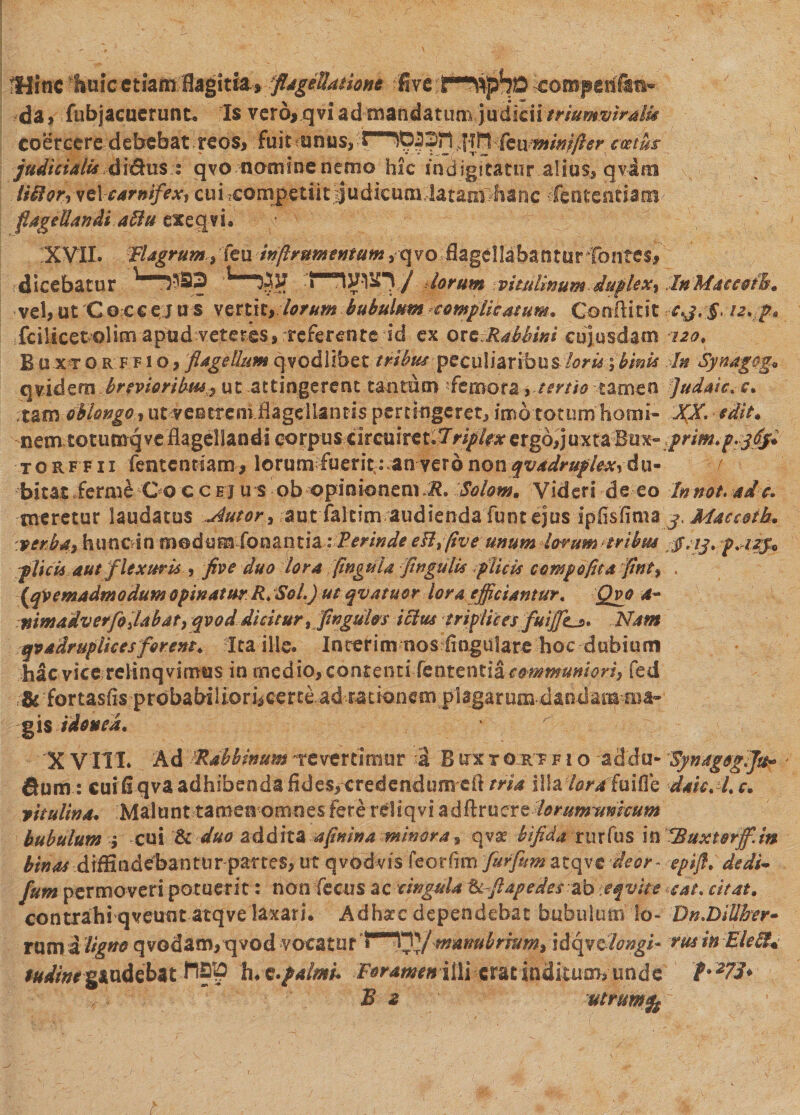 Hinc huic etiam flagitia, flagellatione sive מלקות compensan-
da, subjacuerunt. Is verò, qvi ad mandatum judicii triumviralis
coërcere debebat reos, fuit unus, חזן הכנסת seu minister cœtûs
judicialis dictus: qvo nomine nemo hîc indigitatur alius, qvàm
lictor, vel carnifex, cui competiit judicum latam hanc sententiam
flagellandi actu exeqvi.
XVII. Flagrum, seu instrumentum, qvo flagellabantur sontes,
dicebatur רצועה עגל כפול / lorum vitulinum duplex, In Maccoth.
vel, ut COCCEJUS vertit, lorum bubulum complicatum. Constitit c.3. §. 12. p.
scilicet olim apud veteres, referente id ex ore Rabbini cujusdam 120.
BUXTORFFIO, flagellum qvodlibet tribus peculiaribus loris; binis In Synagog.
qvidem brevioribus, ut attingerent tantùm femora, tertio tamen Judaic. c.
tam oblongo, ut ventrem flagellantis pertingeret, imò totum homi- XX. edit.
nem totumqve flagellandi corpus circuiret. Triplex ergò, juxta Bux- prim. p. 365.
TORFFII sententiam, lorum fuerit: an verò non qvadruplex, du-
bitat fermè COCCEJUS ob opinionem R. Solom. Videri de eo In not. ad c.
meretur laudatus Autor, aut saltim audienda sunt ejus ipsissima 3. Maccoth.
verba, hunc in modum sonantia: Perinde est, sive unum lorum tribus §. 13. p. 125.
plicis aut flexuris, sive duo lora singula singulis plicis composita sint,
(qvemadmodum opinatur R. Sol.) ut qvatuor lora efficiantur. Qvo a-
nimadverso, labat, qvod dicitur, singulos ictus triplices fuisse. Nam
qvadruplices forent. Ita ille. Interim nos singulare hoc dubium
hâc vice relinqvimus in medio, contenti sententiâ communiori, sed
& fortassis probabiliori, certè ad rationem plagarum dandam ma-
gis idoneâ.
XVIII. Ad Rabbinum revertimur à BUXTORFFIO addu- Synagog. Ju-
ctum: cui si qva adhibenda fides, credendum est tria illa lora fuisse daic. l. c.
vitulina. Malunt tamen omnes ferè reliqvi adstruere lorum unicum
bubulum; cui & duo addita asinina minora, qvæ bifida rursus in Buxtorff. in
binas diffindebantur partes, ut qvodvis seorsim sursum atqve deor- epist. dedi-
sum permoveri potuerit: non secus ac cingula & stapedes ab eqvite cat. citat.
contrahi qveunt atqve laxari. Adhæc dependebat bubulum lo- Dn. Dillher-
rum à ligno qvodam, qvod vocatur יד / manubrium, idqve longi- rus in Elect.
tudine gaudebat טפח h. e. palmi. Foramen illi erat inditum, unde p. 273.
B 2 utrumq;